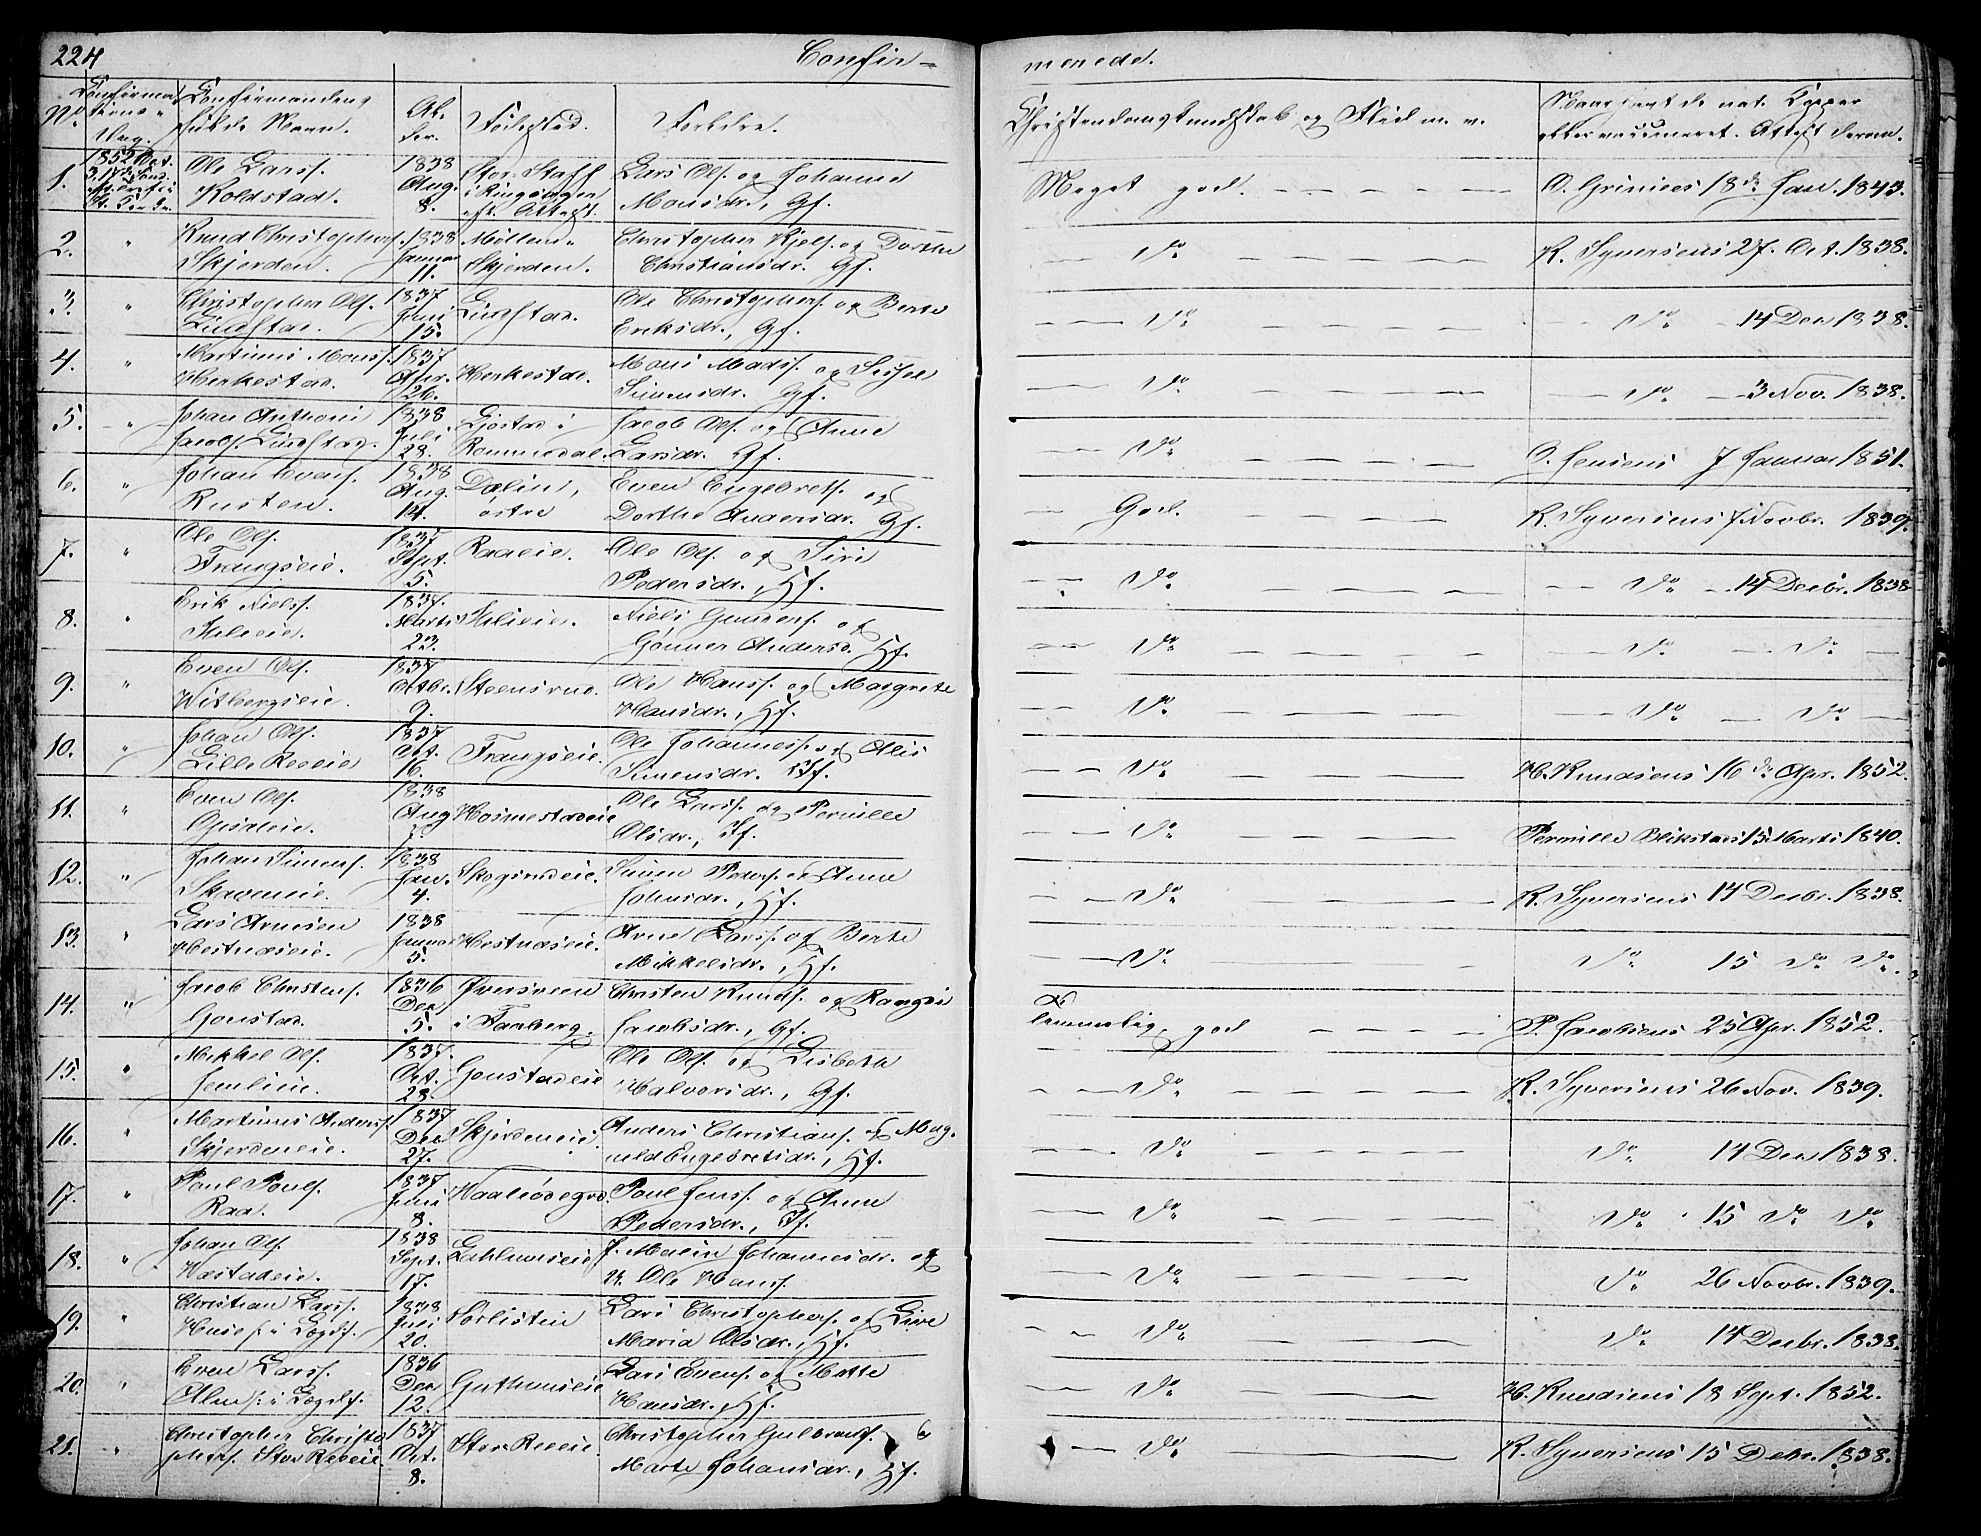 224
Confir-
merede.
No.
Confirma-
tions-
Dag.
Confirmandens
fulde Navn.
Al-
der.
Fødested.
Forældre.
Christendomskundskab og Flid m. v.
Naar havt de nat. Kopper
eller vaccineret. Attest derom.
1.
1852 Oct.
Ole Larss.
Koldstad.
1838
Aug.
8.
Stor Staff
i Ringsager
eft. Attest.
Lars Ols. og Johanne
Monsdr., Gf.
Meget god.
O. Grinies 18de Jan. 1843.
2.
"
Knud Christophers.
Skjerden.
1838
Januar
11.
Møllers
Skjerden.
Christopher Kjels. og Dorthe
Christiansdr. Gf.
Do
K. Syversens 27. Oct. 1838.
3.
"
Christopher Ols.
Lindstad.
1837
Juni
15.
Lindstad.
Ole Christophers. og Berte
Eriksdr., Gf.
Do
Do 14 Dec 1838.
4.
"
Martinus Monss.
Herkestad.
1837
Apr.
26.
Herkestad.
Mons Madss. og Sissel
Simensdr. Gf.
Do
Do 3 Nov. 1838.
5.
"
Johan Anthoni
Jacobs. Lindstad.
1838
Juli
28.
Ljøstad i
Rommedal.
Jacob Ols. og Anne
Larsdr. Gf.
Do
O. Jensens 7 Januar 1851.
6.
"
Johan Evens.
Rusten.
1838
Aug.
14.
Dælin,
østre
Even Engebrets. og
Dorthe Andersdr. Gf.
God.
K. Syversens 7 Novbr. 1839.
7.
"
Ole Ols.
Frangseie.
1837
Sept.
5.
Raaeie.
Ole Ols. og Siri
Pedersdr., Hf.
Do
Do 14 Decbr. 1838
8.
"
Erik Nielss.
1837.
Marts
23.
Niels Gunners. og
Gønner Andersd. Hf.
Do
Do Do
9.
"
Even Ols.
Vitbergseie.
1837
Octbr.
9.
Steensrud.
Ole Hanss. og Margrete
Hansdr., Hf.
Do
Do Do
10.
"
Johan Ols.
Lille Reeeie
1837
Oct.
16.
Frangseie.
Ole Johanness. og Alis
Simensdr. Hf.
Do
H. Knudsens 16de Apr. 1852.
11.
"
Even Ols.
1838
Aug
Hosmestadeie
Ole Larss. og Pernille
Olsdr., Hf.
Do
Pernille Blikstads 15 Marts 1840.
12.
"
Johan Simens.
Skaveneie.
1838
Jan.
4.
Skogsrudeie.
Simen Peders. og Anne
Johnsdr., Hf.
Do
K. Syversens 14 Decbr. 1838.
13.
"
Lars Arnesen
Hestnæseie.
1838
Januar
5.
Hestnæseie.
Arne Larss. og Berte
Mikkelsdr., Hf.
Do
Do 15 Do Do.
14.
"
Jacob Christens.
Gonstad.
1836
Dec
5.
Iversveen
i Faaberg.
Christen Knuds. og Rangdi
Jacobsdr., Gf.
Temmelig god
P. Jacobsens 25 Apr. 1852.
15.
"
Mikkel Ols.
Jemlieie.
1837.
Oct.
28.
Gonstadeie
Ole Ols. og Lisbeth
Halvorsdr., Gf.
Do
K. Syversens 26 Nov. 1839.
16.
"
Martinus Anders.
Skjerdeneie.
1837
Dec
27.
Skjerdeneie
Anders Christians. & Mag-
nild Engebretsdr., Hf.
Do
Do 14 Dec 1838.
17.
"
Poul Pouls.
Raa.
1837
Juni
8.
Vaalsødegrd.
Poul Jenss. og Anne
Pedersdr., Hf.
Do
Do 15 Do Do
18.
"
Johan Ols.
Næstadeie.
1838
Sept.
17.
Dahlumseie
P. Marin Johannesdr. og
U. Ole Hanss.
Do
Do 26 Novbr. 1839.
19.
"
Christian Larss.
Huse p. i Lægdf.
1838
Juli
20.
Sorlistin
Lars Christophers. og Live
Maria Olsdr., Hf.
Do
Do 14 Decbr. 1838.
20.
"
Even Larss.
Alm p. i Lægdf.
1836
Dec
12.
Guthuuseie
Lars Evens. og Mette
Hansdr., Hf.
Do
H. Knudsens 18 Sept. 1852.
21.
"
Christopher Christo-
phers. Stor Reeeie.
1837
Oct.
8.
Stor Reeeie.
Christopher Gulbrands. &
Marte Johansdr., Hf.
Do
K. Syversens 15 Decbr. 1838.